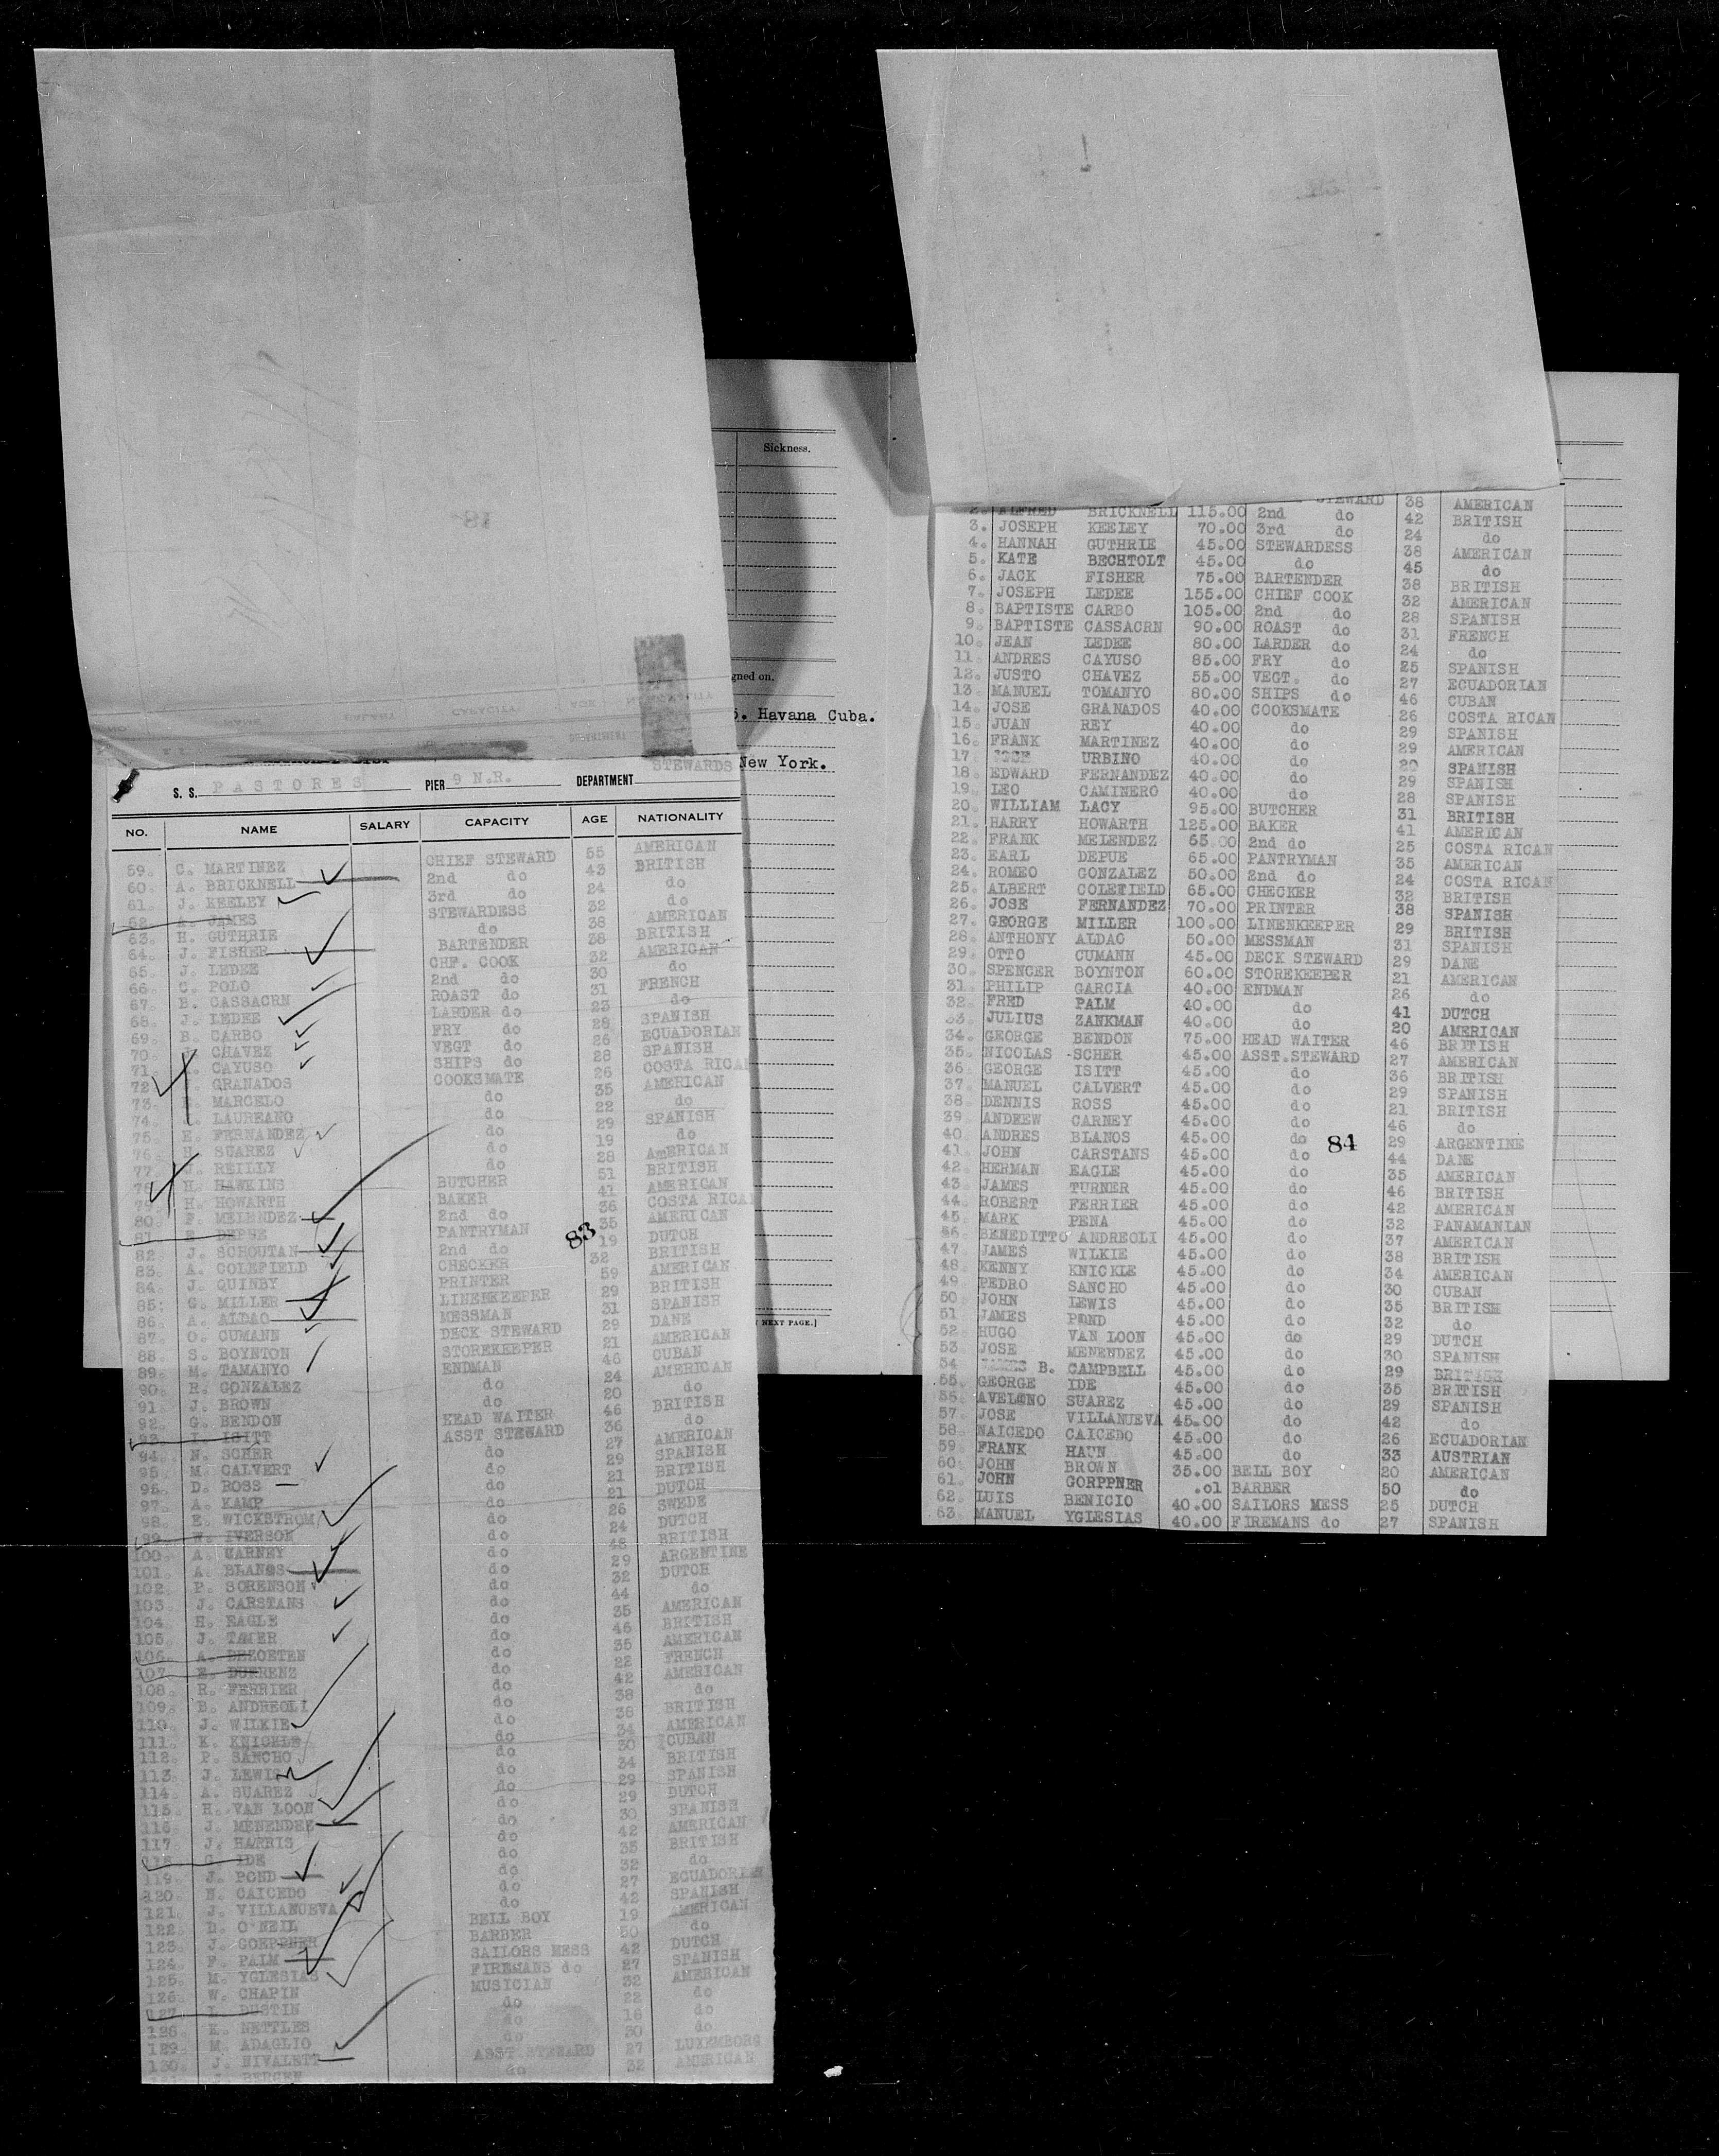 Sickness.
gned on.
Havana Cuba.
New York.
NEXT PAGE.]
S. S. PASTORES PIER 9 N.R. DEPARTMENT STEWARDS
NO. NAME SALARY CAPACITY AGE NATIONALITY
59. C. MARTINEZ CHIEF STEWARD 55 AMERICAN
60. A. BRICKNELL 2nd do 43 BRITISH
61. J. KEELEY 3rd do 24 do
62. JAMES STEWARDESS 32 do
63. H. GUTHRIE do 38 AMERICAN
64. J. FISHER BARTENDER 38 BRITISH
65. J. LEDEE CHF. COOK 32 AMERICAN
66. C. POLO 2nd do 30 do
67. B. CASSACRN ROAST do 31 FRENCH
68. J. LEDEE LARDER do 23 do
69. B. CARBO FRY do 28 SPANISH
70. CHAVEZ VEGT do 26 ECUADORIAN
71. CAYUSO SHIPS do 28 SPANISH
72. GRANADOS COOKSMATE 26 COSTA RICA
73. MARCELO do 35 AMERICAN
74. LAUREANO do 22 do
75. E. FERNANDEZ do 29 SPANISH
76. H. SUAREZ do 19 do
77. J. REILLY do 28 AMERICAN
78. H. HAWKINS BUTCHER 51 BRITISH
79. H. HOWARTH BAKER 41 AMERICAN
80. F. MELENDEZ 2nd do 36 COSTA RICA
81. E. DEPUE PANTRYMAN 35 AMERICAN
82. J. SCHOUTAN 2nd do 19 DUTCH
83. A. COLEFIELD CHECKER 32 BRITISH
84. J. QUINBY PRINTER 59 AMERICAN
85. G. MILLER LINENKEEPER 29 BRITISH
86. A. ALDAO MESSMAN 31 SPANISH
87. O. CUMANN DECK STEWARD 29 DANE
88. S. BOYNTON STOREKEEPER 21 AMERICAN
89. M. TAMANYO ENDMAN 46 CUBAN
90. R. GONZALEZ do 24 AMERICAN
91. J. BROWN do 20 do
92. G. BENDON HEAD WAITER 46 BRITISH
93. ISITT ASST STEWARD 36 do
94. N. SCHER do 27 AMERICAN
95. M. CALVERT do 29 SPANISH
96. D. ROSS do 21 BRITISH
97. A. KAMP do 21 DUTCH
98. E. WICKSTROM do 26 SWEDE
99. W. IVERSON do 24 DUTCH
100. A. CARNEY do 48 BRITISH
101. A. BLANOS do 29 ARGENTINE
102. P. SORENSON do 32 DUTCH
103. J. CARSTANS do 44 do
104. H. EAGLE do 35 AMERICAN
105. J. do 46 BRITISH
106. A. DEZOETEN do 35 AMERICAN
107. E. do 22 FRENCH
108. R. FERRIER do 42 AMERICAN
109. B. ANDREOLI do 38 do
110. J. WILKIE do 38 BRITISH
111. K. KNICKLE do 34 AMERICAN
112. P. SANCHO do 30 CUBAN
113. J. LEWIS do 34 BRITISH
114. A. SUAREZ do 29 SPANISH
115. H. VAN LOON do 29 DUTCH
116. J. MENENDEZ do 30 SPANISH
117. J. HARRIS do 42 AMERICAN
118. G. IDE do 35 BRITISH
119. J. POND do 32 do
120. N. CAICEDO do 27 ECUADORIAN
121. J. VILLANUEVA do 42 SPANISH
122. D. O'NEIL BELL BOY 19 AMERICAN
123. J. GOEPPNER BARBER 50 do
124. F. PALM SAILORS MESS 42 DUTCH
125. M. YGLESIAS FIREMANS do 27 SPANISH
126. W. CHAPIN MUSICIAN 32 AMERICAN
127. L. DUSTIN do 22 do
128. K. NETTLES do 16 do
129. M. ADAGLIO do 30 do
130. J. NIVALETT ASST STEWARD 27 LUXEMBORG
BERGEN do 32 AMERICAN
83
STEWARD 38 AMERICAN
2. ALFRED BRICKNELL 115.00 2nd do 42 BRITISH
3. JOSEPH KEELEY 70.00 3rd do 24 do
4. HANNAH GUTHRIE 45.00 STEWARDESS 38 AMERICAN
5. KATE BECHTOLT 45.00 do 45 do
6. JACK FISHER 75.00 BARTENDER 38 BRITISH
7. JOSEPH LEDEE 155.00 CHIEF COOK 32 AMERICAN
8. BAPTISTE CARBO 105.00 2nd do 28 SPANISH
9. BAPTISTE CASSACRN 90.00 ROAST do 31 FRENCH
10. JEAN LEDEE 80.00 LARDER do 24 do
11. ANDRES CAYUSO 85.00 FRY do 25 SPANISH
12. JUSTO CHAVEZ 55.00 VEGT. do 27 ECUADORIAN
13. MANUEL TOMANYO 80.00 SHIPS do 46 CUBAN
14. JOSE GRANADOS 40.00 COOKSMATE 26 COSTA RICAN
15. JUAN REY 40.00 do 29 SPANISH
16. FRANK MARTINEZ 40.00 do 29 AMERICAN
17. JOSE URBINO 40.00 do 29 SPANISH
18. EDWARD FERNANDEZ 40.00 do 29 SPANISH
19. LEO CAMINERO 40.00 do 28 SPANISH
20. WILLIAM LACY 95.00 BUTCHER 31 BRITISH
21. HARRY HOWARTH 125.00 BAKER 41 AMERICAN
22. FRANK MELENDEZ 65.00 2nd do 25 COSTA RICAN
23. EARL DEPUE 65.00 PANTRYMAN 35 AMERICAN
24. ROMEO GONZALEZ 50.00 2nd do 24 COSTA RICAN
25. ALBERT COLEFIELD 65.00 CHECKER 32 BRITISH
26. JOSE FERNANDEZ 70.00 PRINTER 38 SPANISH
27. GEORGE MILLER 100.00 LINENKEEPER 29 BRITISH
28. ANTHONY ALDAO 50.00 MESSMAN 31 SPANISH
29. OTTO CUMANN 45.00 DECK STEWARD 29 DANE
30. SPENCER BOYNTON 60.00 STOREKEEPER 21 AMERICAN
31. PHILIP GARCIA 40.00 ENDMAN 26 do
32. FRED PALM 40.00 do 41 DUTCH
33. JULIUS ZANKMAN 40.00 do 20 AMERICAN
34. GEORGE BENDON 75.00 HEAD WAITER 46 BRITISH
35. NICOLAS SCHER 45.00 ASST.STEWARD 27 AMERICAN
36. GEORGE ISITT 45.00 do 36 BRITISH
37. MANUEL CALVERT 45.00 do 29 SPANISH
38. DENNIS ROSS 45.00 do 21 BRITISH
39. ANDREW CARNEY 45.00 do 46 do
40. ANDRES BLANOS 45.00 do 29 ARGENTINE
84
41. JOHN CARSTANS 45.00 do 44 DANE
42. HERMAN EAGLE 45.00 do 35 AMERICAN
43. JAMES TURNER 45.00 do 46 BRITISH
44. ROBERT FERRIER 45.00 do 42 AMERICAN
45. MARK PENA 45.00 do 32 PANAMANIAN
46. BENEDITTO ANDREOLI 45.00 do 37 AMERICAN
47. JAMES WILKIE 45.00 do 38 BRITISH
48. KENNY KNICKLE 45.00 do 34 AMERICAN
49. PEDRO SANCHO 45.00 do 30 CUBAN
50. JOHN LEWIS 45.00 do 35 BRITISH
51. JAMES POND 45.00 do 32 do
52. HUGO VAN LOON 45.00 do 29 DUTCH
53. JOSE MENENDEZ 45.00 do 30 SPANISH
54. JAMES B. CAMPBELL 45.00 do 29 BRITISH
55. GEORGE IDE 45.00 do 35 BRITISH
56. AVELONO SUAREZ 45.00 do 29 SPANISH
57. JOSE VILLANUEVA 45.00 do 42 do
58. NAICEDO CAICEDO 45.00 do 26 ECUADORIAN
59. FRANK HAUN 45.00 do 33 AUSTRIAN
60. JOHN BROWN 35.00 BELL BOY 20 AMERICAN
61. JOHN GORPPNER .01 BARBER 50 do
62. LUIS BENICIO 40.00 SAILORS MESS 25 DUTCH
63. MANUEL YGLESIAS 40.00 FIREMANS do 27 SPANISH